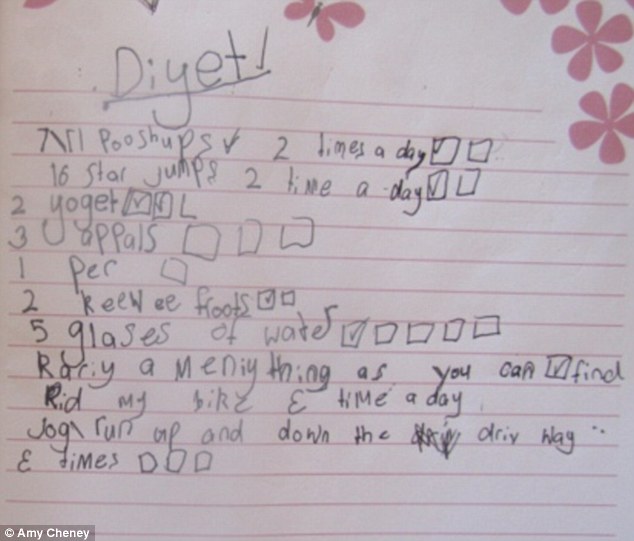 Diyet!
7N11 Pooshups ✓ 2 times a day ☑ ☐
16 Star jumps 2 time a day ☑ ☐
2 yoget ☑ ☑
3 appals ☐ ☐ ☐
1 per ☐
2 keew ee froots ☑ ☐
5 glases of water ☑ ☐ ☐ ☐ ☐
Rariy a meniything as you can ☑ find
Rid my bike 3 time a day
Jog run up and down the driv way
3 times ☐ ☐ ☐
© Amy Cheney